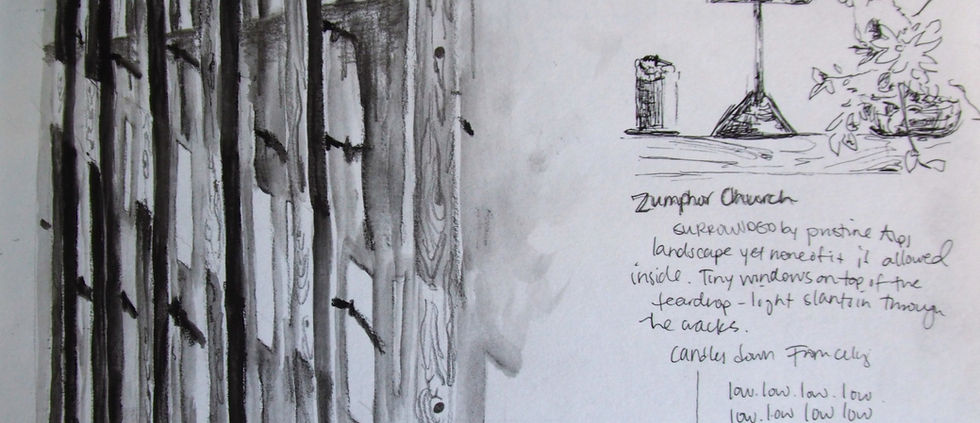 Zumphor Church
SURROUNDED by pristine Alps
landscape yet none of it is allowed
inside. Tiny windows on top of the
teardrop - light slants in through
the cracks.
Candles down From
low. low. low. low.
low. low low low